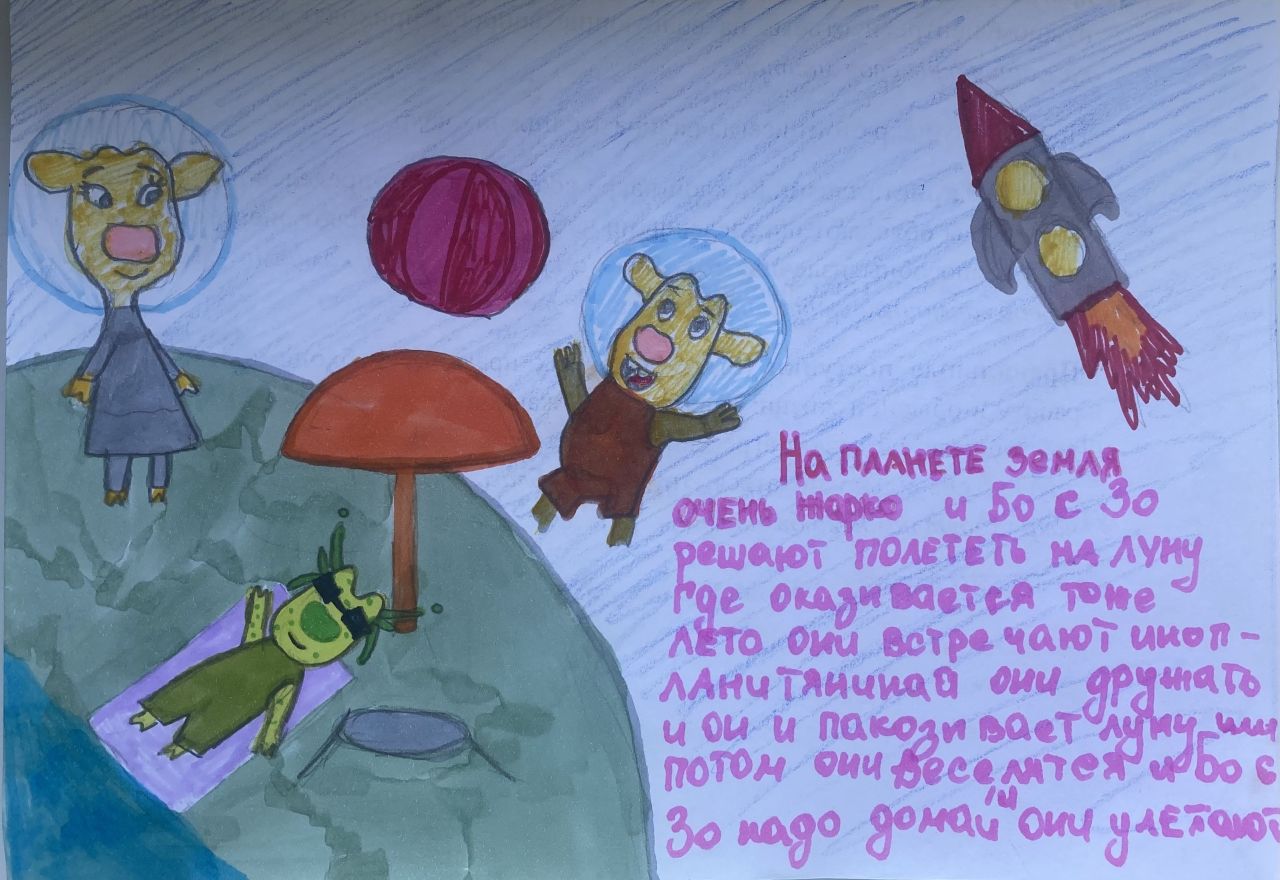 На ПЛАНЕТЕ Земля
очень жарко и Бо с Зо
решают полететь на луну
где оказивается тоже
лето они встречают иноп-
ланитяникай они дружать
и ои и пакозивает луну
потом они веселятся и Бо с
Зо надо домай и они улетают